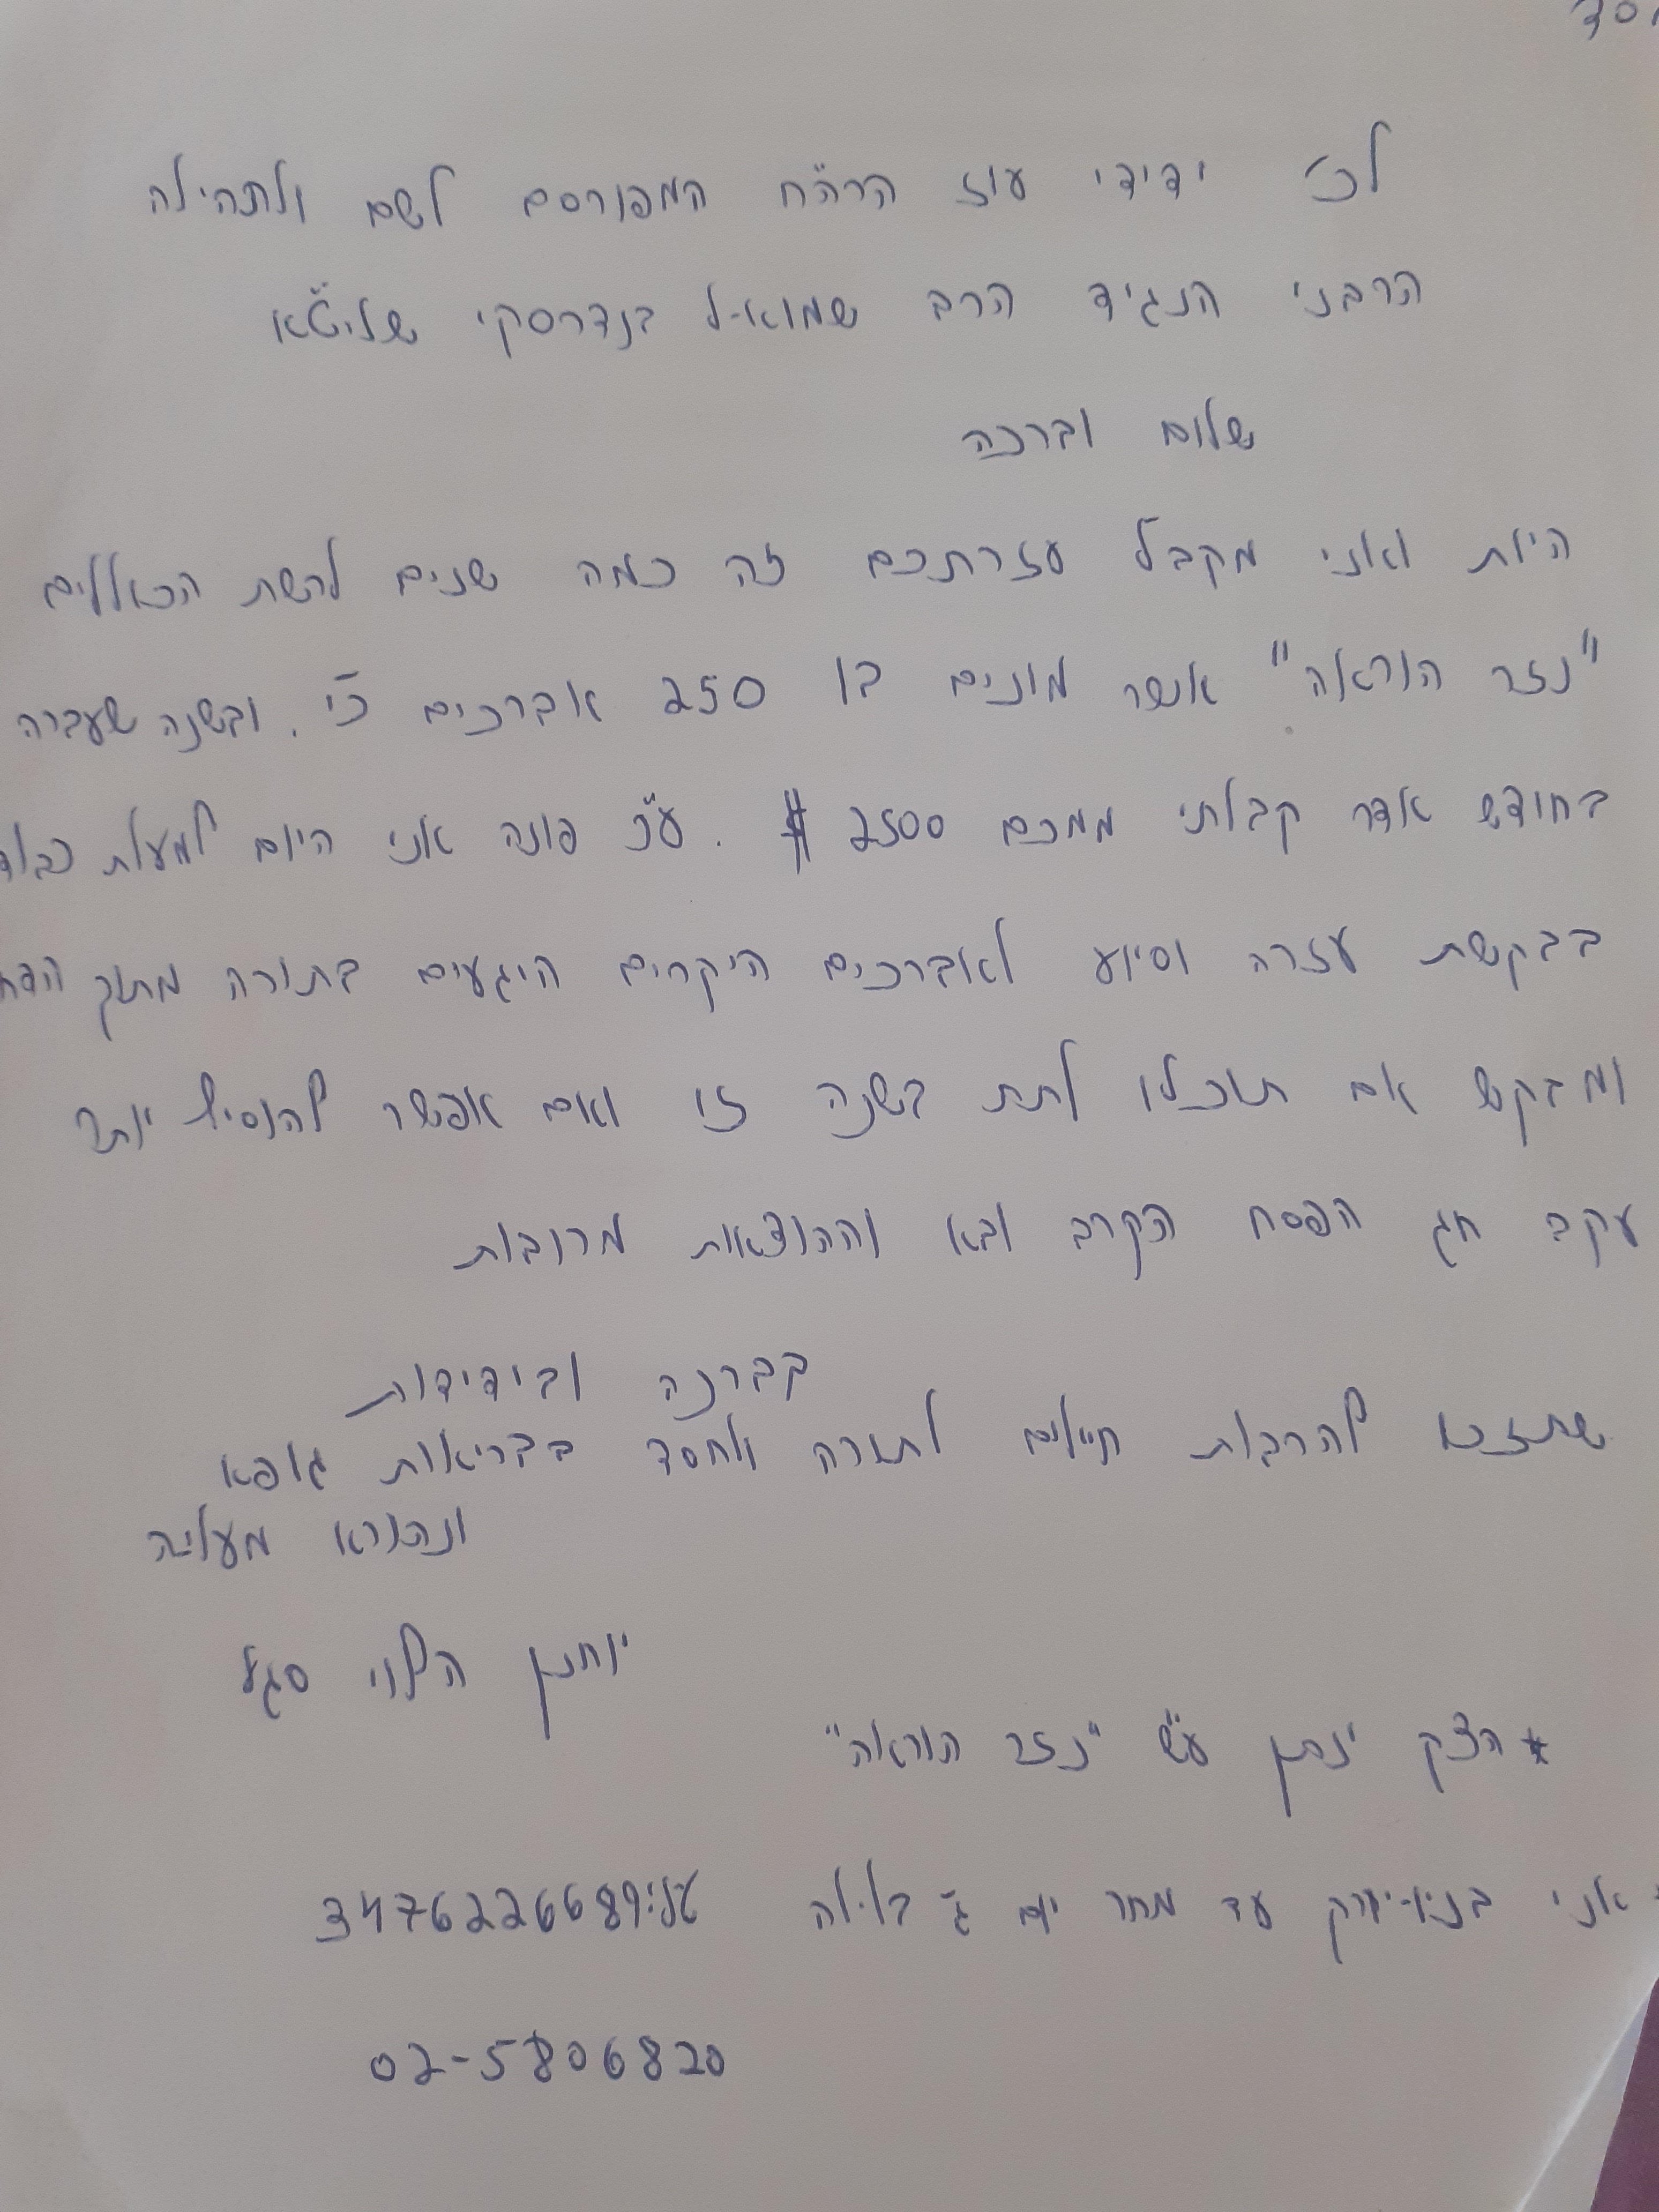 לכ' ידידי עוז הרה"ח המפורסם לשם ולתהילה
הרבני הנגיד הרב שמואל בנדרסקי שליט"א
שלום וברכה
היות ואני מקבל עזרתכם זה כמה שנים לרשת הכוללים
"נזר הוראה" אשר מונים בו 250 אברכים כ"י. ובשנה שעברה
בחודש אדר קבלתי ממכם 2500 $. ע"כ פונה אני היום למעלת כבוד
בבקשת עזרה וסיוע לאברכים היקרים היגעים בתורה מתוך
ומבקש אם תוכלו לתת בשנה זו ואם אפשר להוסיף יותר
עקב חג הפסח הקרב ובא וההוצאות מרובות
בברכה ובידידות
שתזכו להרבות חיילים לתורה ולחסד בבריאות גופא
ונהורא מעליא
יוחנן הלוי סגל
* הצ'ק ינתן ע"ש "נזר הוראה"
אני בניו-יורק עד מחר יום ג' בלילה טל': 3476226689
02-5806820